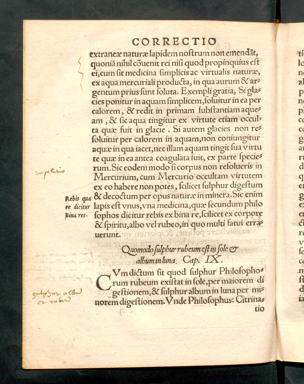 CORRECTIO
extraneæ naturæ lapidem nostrum non emendāt,
quoniā nihil cōuenit rei nisi quod propinquius est
ei, cum sit medicina simplicis ac virtualis naturæ,
ex aqua mercuriali producta, in qua aurum & ar-
gentum prius sunt soluta. Exempli gratia, Si gla-
cies ponitur in aquam simplicem, soluitur in ea per
calorem, & redit in primam substantiam aqueam
, & sic aqua tingitur ex virtute etiam occul-
ta quæ fuit in glacie. Si autem glacies non re-
soluitur per calorem in aquam, non coniungitur
aquæ in qua iacet, nec illam aquam tingit sua virtu
te quæ in ea antea coagulata fuit, ex parte specie-
rum. Sic eodem modo si corpus non resolueris in
Mercurium, cum Mercurio occultam virtutem
ex eo habere non potes, scilicet sulphur digestum
& decoctum per opus naturæ in minera. Sic enim
lapis est vnus, vna medicina, quæ secundum philo
sophos dicitur rebis ex bina re, scilicet ex corpore
& spiritu, albo vel rubeo, in quo multi fatui erra-
uerunt.
Rebis qua
re dicitur
bina res.
Quomodo sulphur rubeum est in sole &
album in luna. Cap. IX.
CVm dictum sit quod sulphur Philosopho-
rum rubeum existat in sole, per maiorem di
gestionem, & sulphur album in luna per mi-
norem digestionem. Vnde Philosophus: Citrina-
tio